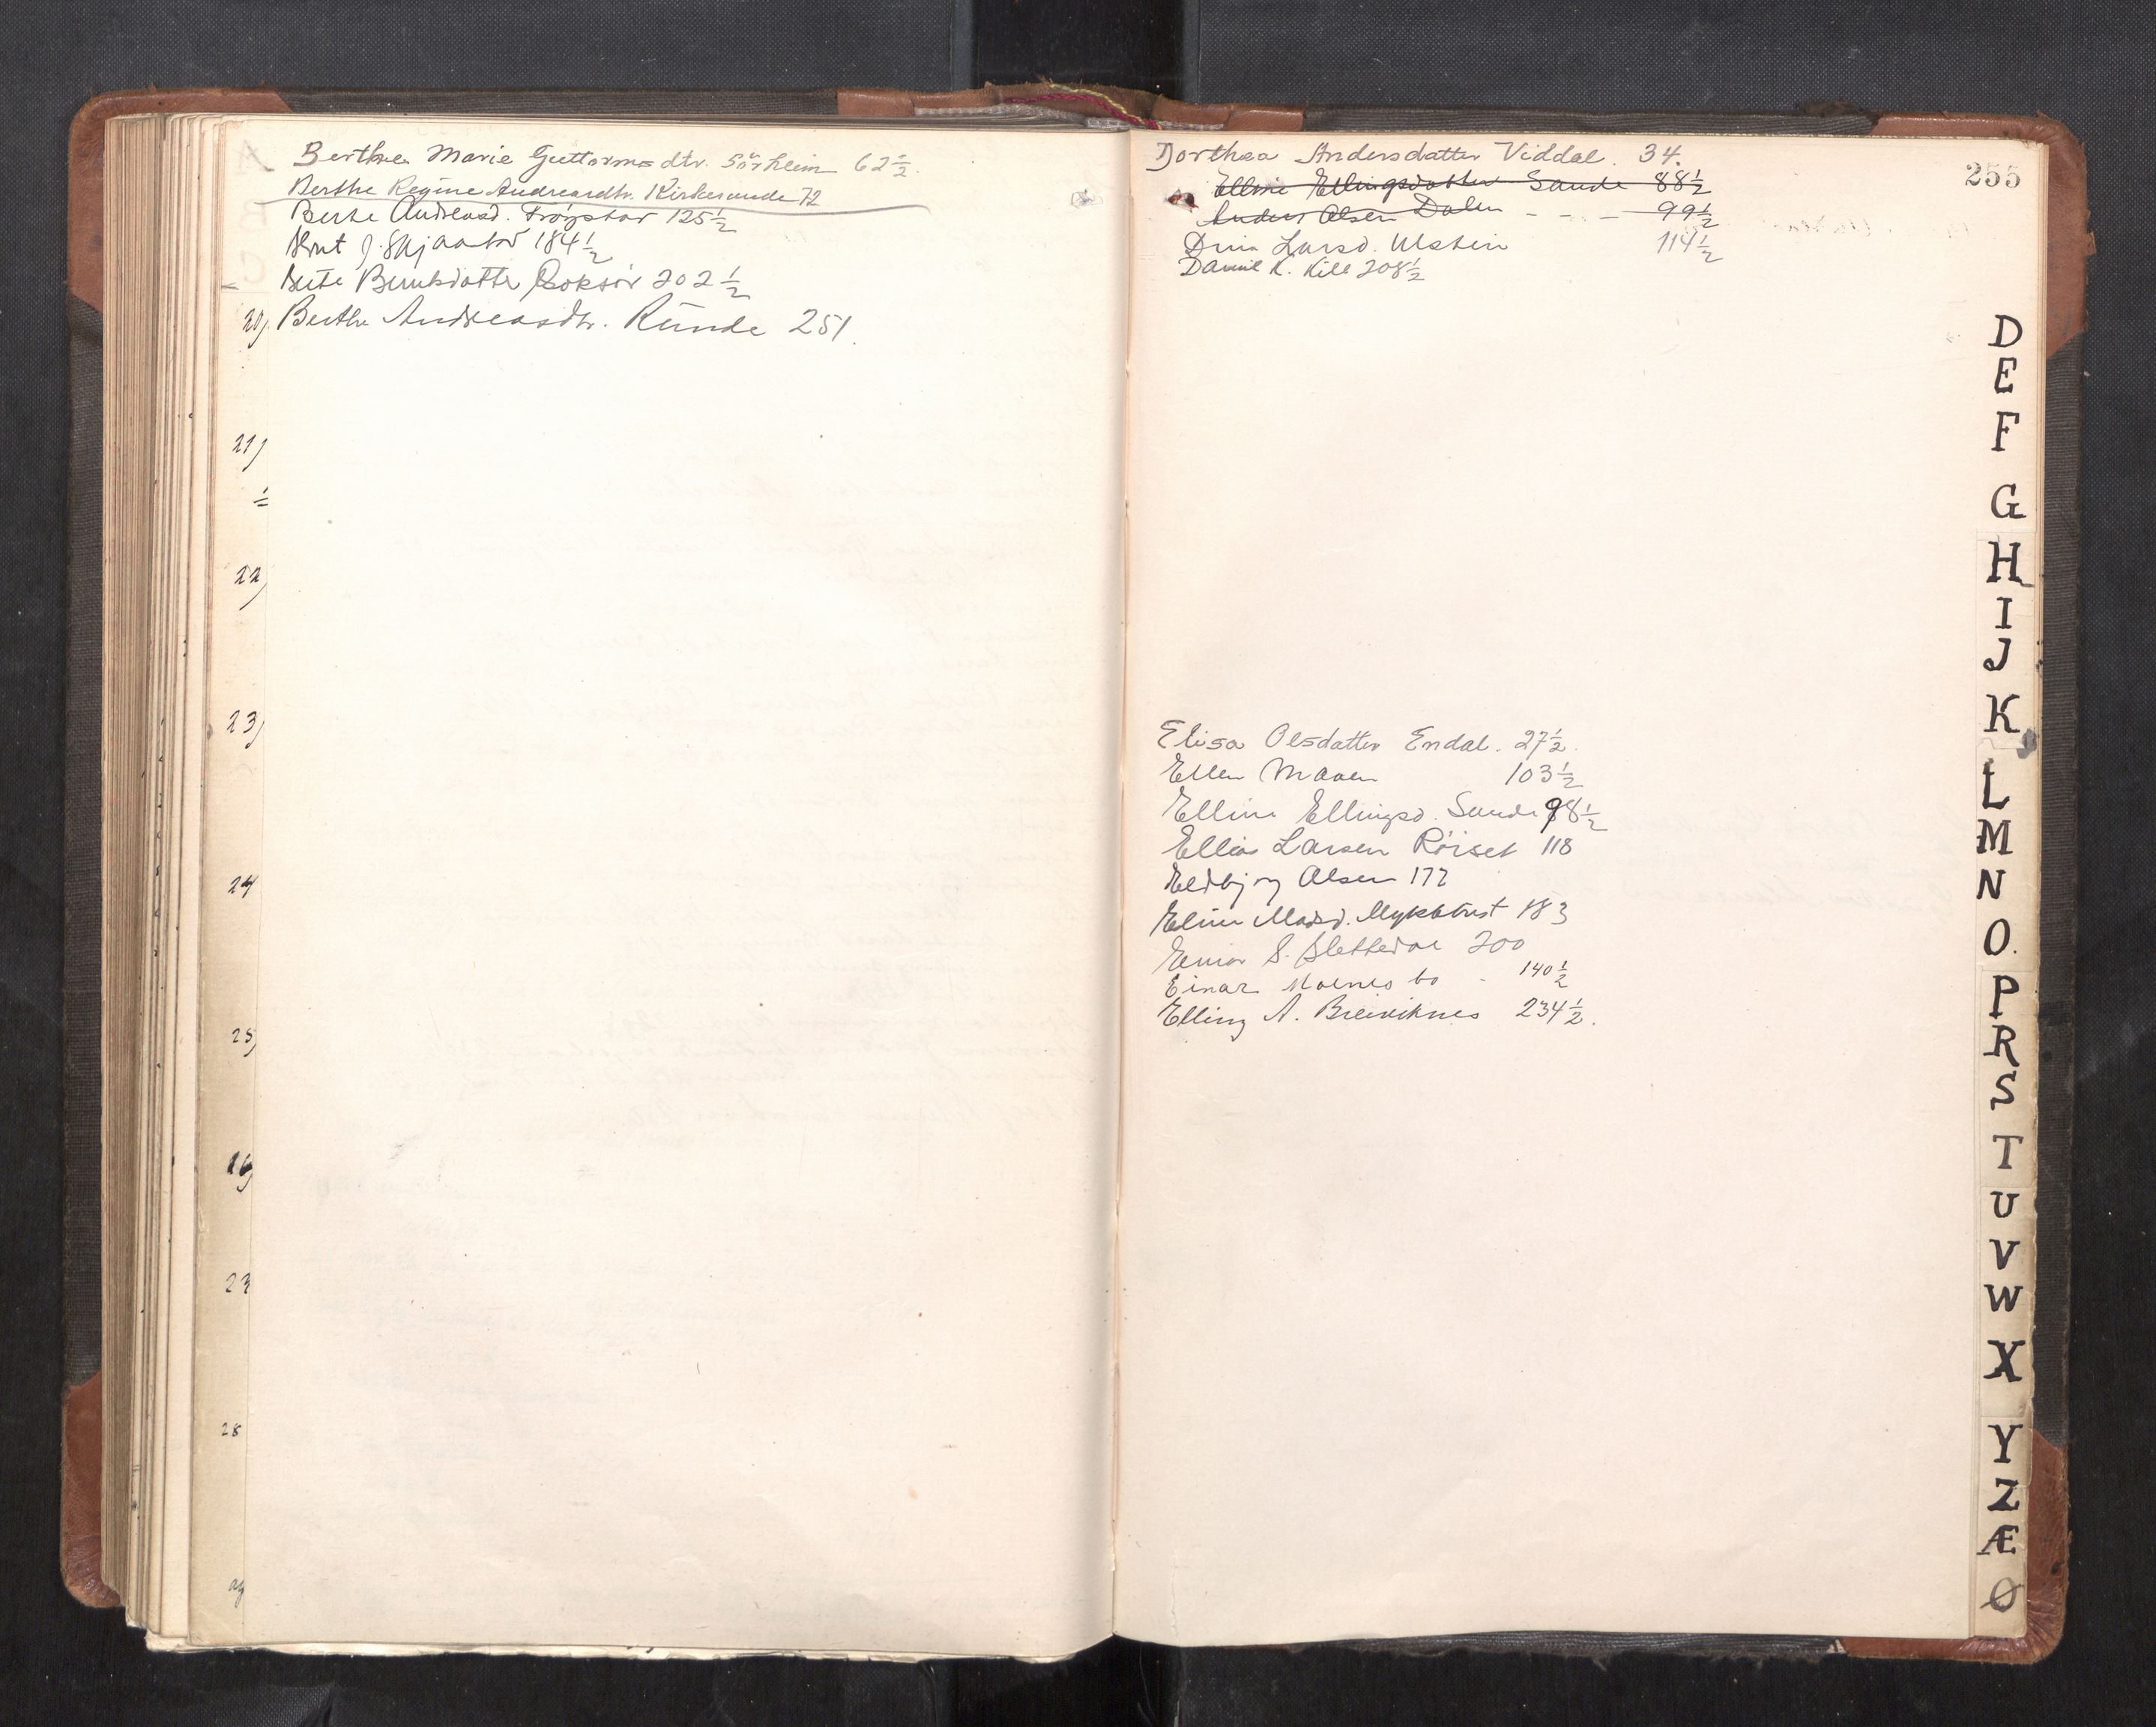 Berthe Marie Guttormsdtr. Sörheim 62½.
Berthe Regine Andreasdtr. Kirkesunde 72
Berte Andreasd. Frøystad 125½
184½
Berte Berntsdatter Goksør 202½
20) Berthe Andreasdtr. Runde 251.
21)
22)
23)
24
25)
23
28
255
Dorthea Andersdatter Viddal. 34.
Elline Ellingsdatter Sande 88½
Anders Olsen Dalen - - - 99½
Dina Larsd. Ulstein 114½
Daniel K. Kile 208½
Elisa Olsdatter Endal. 27½.
Ellen Maren 103½
Elline Ellingsd. Sande 98½
Ellias Larsen Röiset 118
Eldbjørg Olsen 177
Eline Madsd. Myklebust 183
Einar S. Slettedal 200
Einar Moenes bo - 140½
Elling A. Breiviknes 234½.
D
E
F
G
H
I
J
K
L
M
N
O.
P
R
S
T
U
V
W
X
Y
Z
Æ
Ø